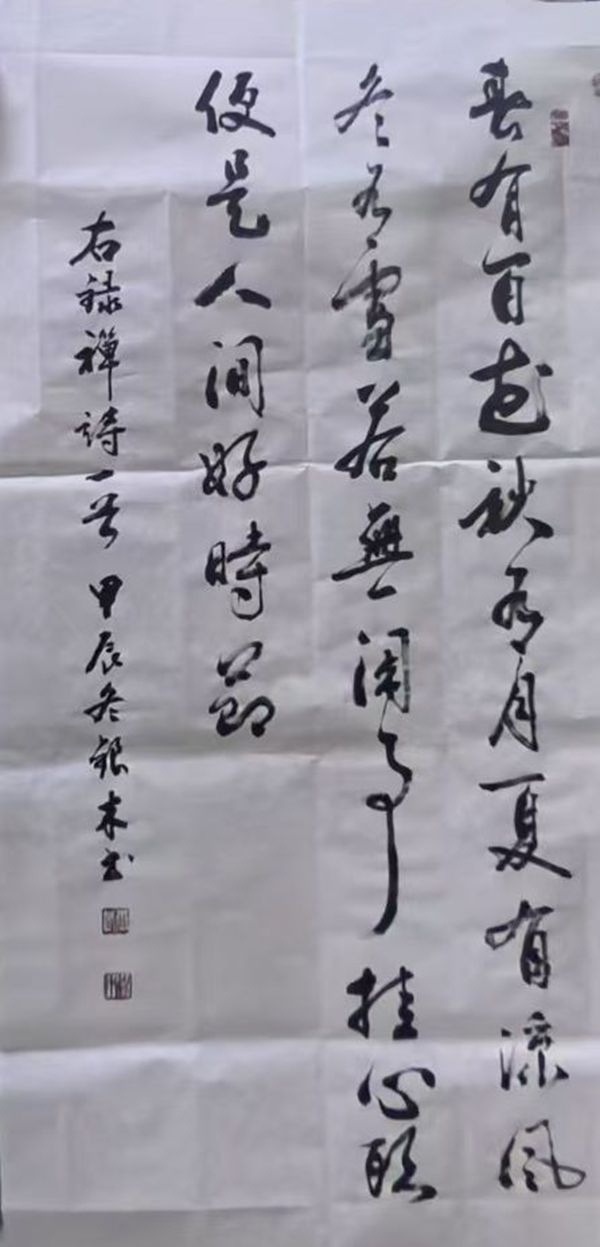 春有百花秋有月夏有涼風
冬有雪若無闲事挂心頭
便是人间好時節
右録禪詩一首甲辰冬銀木书